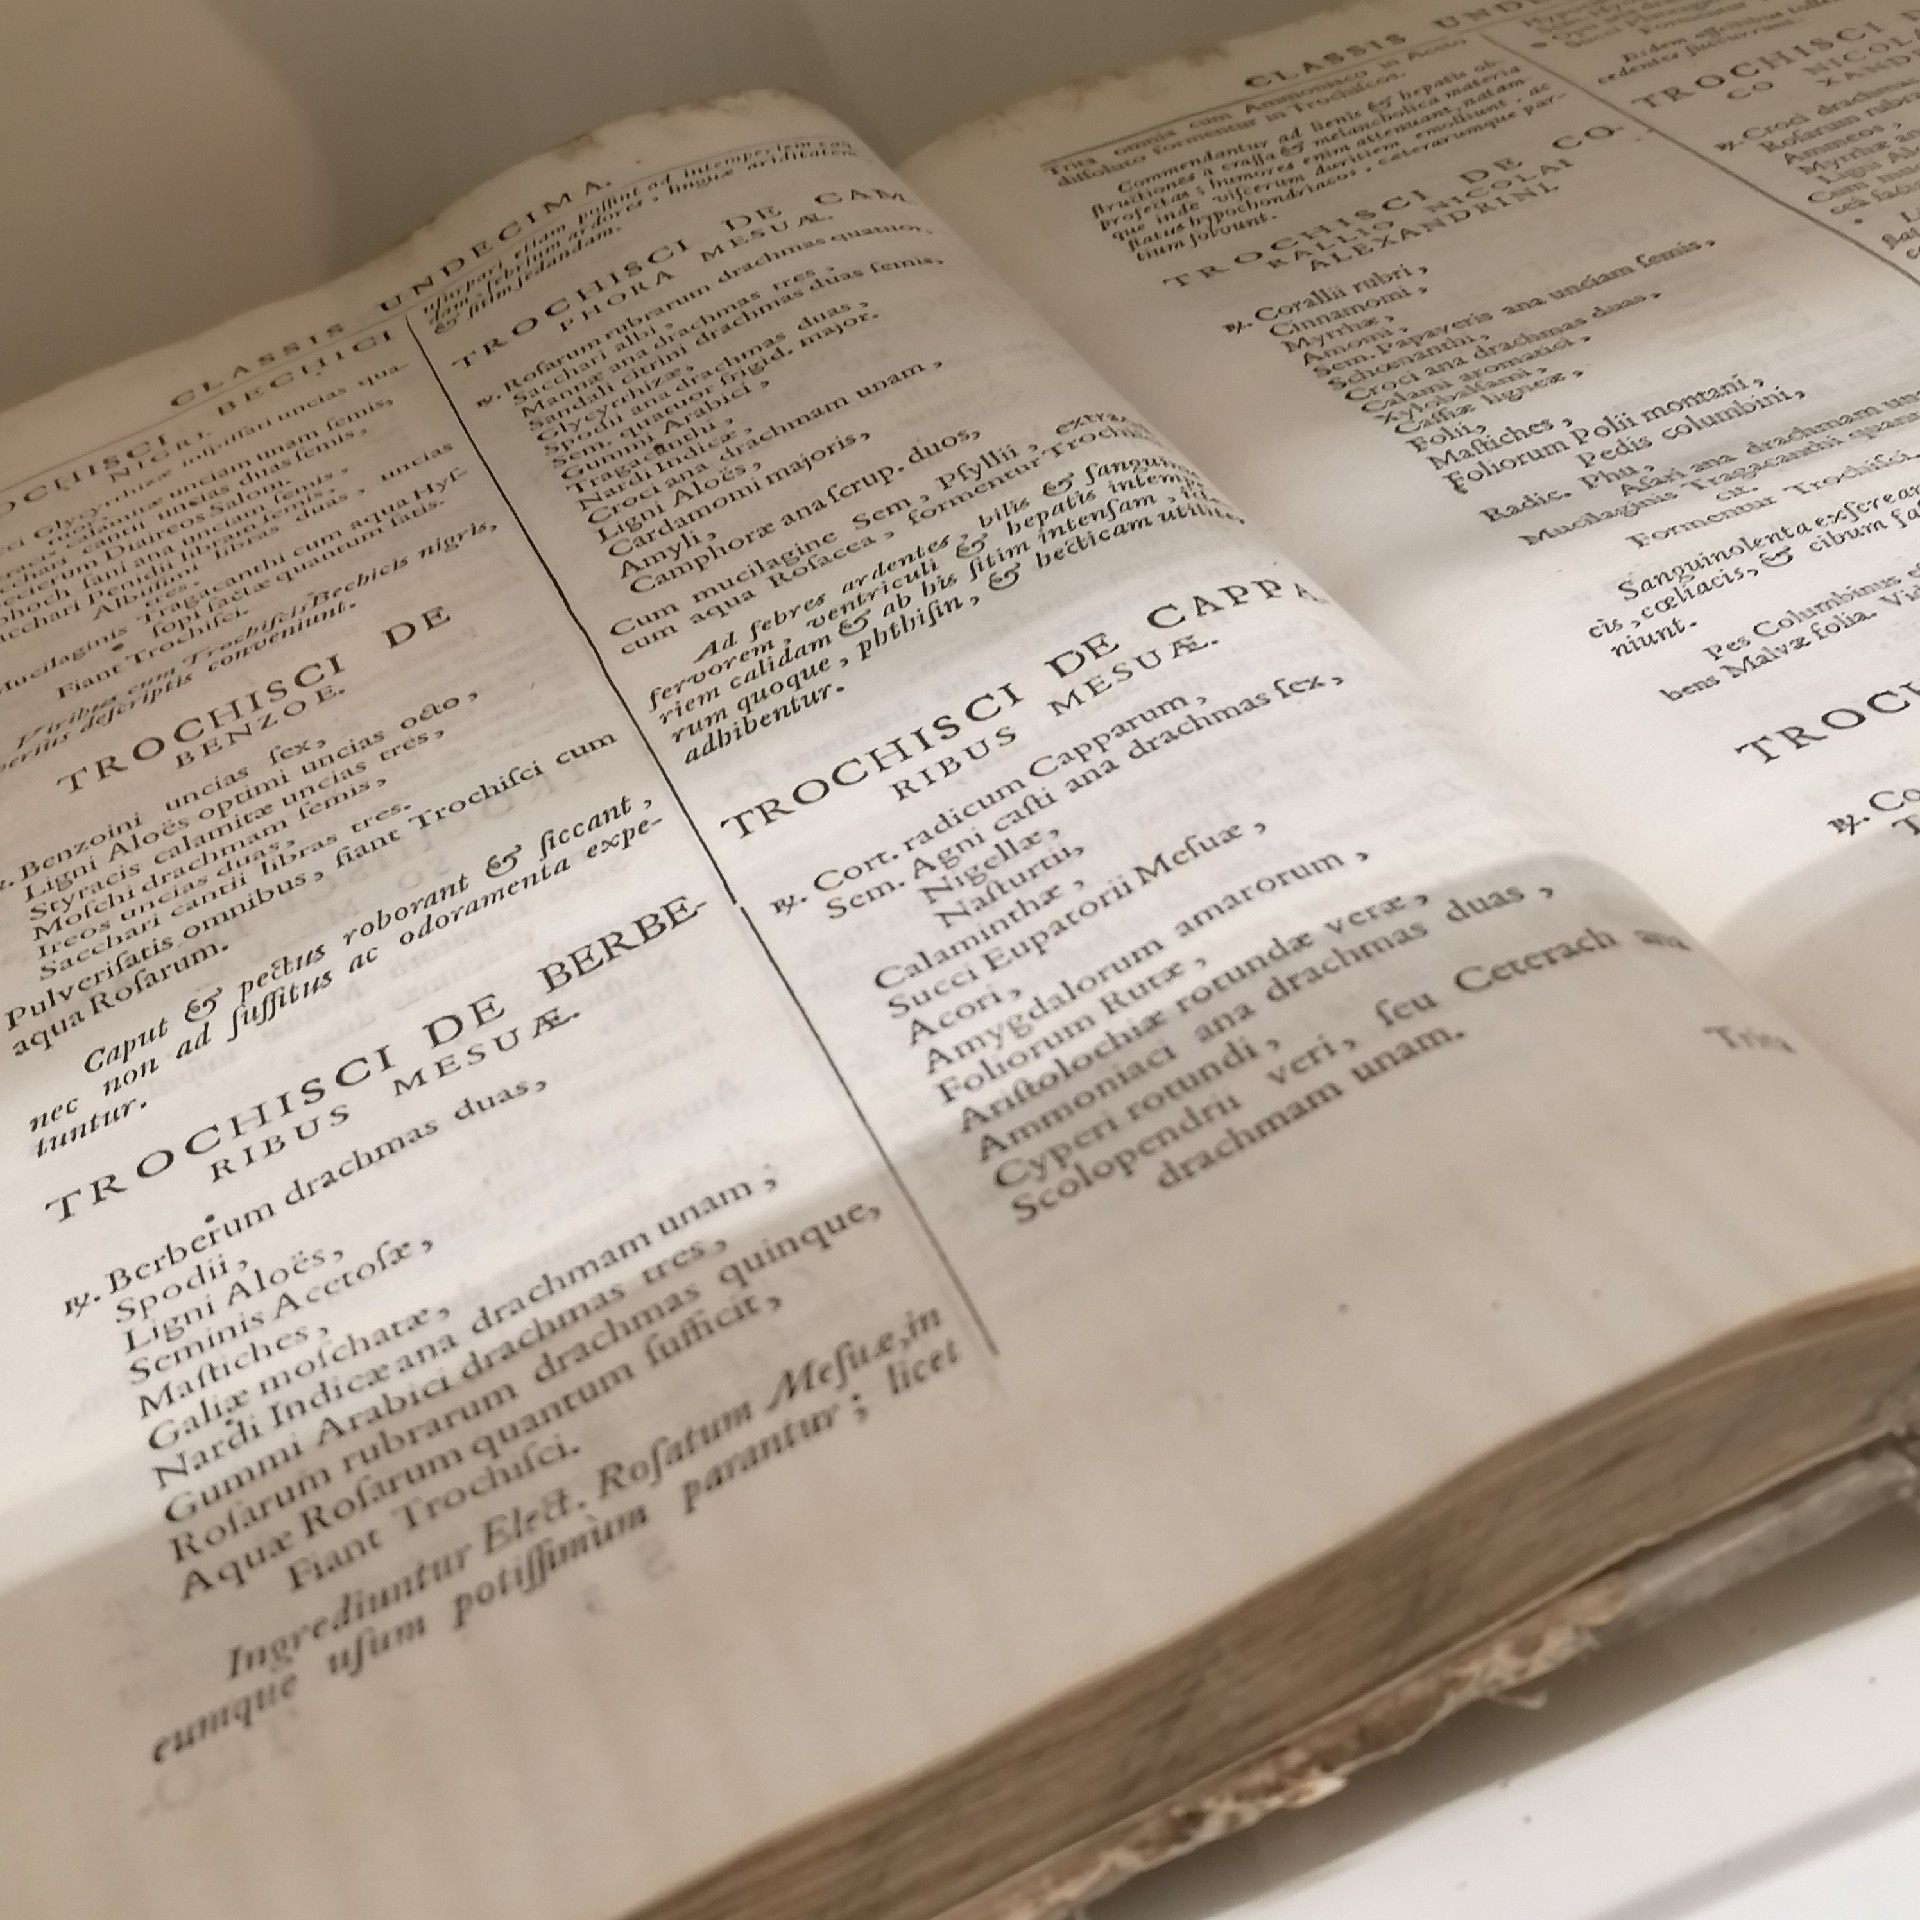 CLASSIS UNDECIMA.
BECHICI
NIGRI.
Glycyrrhizæ inspissati uncias qua-
calamitæ unciam unam semis,
canti uncias duas semis,
Specierum Diaireos Salom.
sani ana unciam semis,
Sacchari Penidii libram semis,
Albissimi libras duas, uncias
tres.
Mucilaginis Tragacanthi cum aqua Hys-
sopi factæ quantum satis.
Fiant Trochisci.
Viribus cum Trochiscis Bechicis nigris,
superius descriptis conveniunt.
TROCHISCI DE
BENZOE.
Benzoini uncias sex,
Ligni Aloës optimi uncias octo,
Styracis calamitæ uncias tres,
Moschi drachmam semis,
Ireos uncias duas,
Sacchari cantii libras tres.
Pulverisatis omnibus, fiant Trochisci cum
aqua Rosarum.
Caput & pectus roborant & siccant,
nec non ad suffitus ac odoramenta expe-
tuntur.
TROCHISCI DE BERBE-
RIBUS MESUÆ.
℞. Berberum drachmas duas,
Spodii,
Ligni Aloës,
Seminis Acetosæ,
Mastiches,
Galiæ moschatæ,
Nardi Indicæ ana drachmam unam;
Gummi Arabici drachmas tres,
Rosarum rubrarum drachmas quinque,
Aquæ Rosarum quantum sufficit,
Fiant Trochisci.
Ingrediuntur Elect. Rosatum Mesuæ, in
eumque usum potissimùm parantur; licet
usurpari etiam possint ad intemperiem cali-
dam, febrium ardores, linguæ ariditatem
& sitim sedandam.
TROCHISCI DE CAM
PHORA MESUÆ.
℞. Rosarum rubrarum drachmas quatuor,
Sacchari albi,
Mannæ ana drachmas tres,
Sandali citrini drachmas duas semis,
Glycyrrhizæ,
Spodii ana drachmas duas,
Sem. quatuor frigid. major.
Gummi Arabici,
Tragacanthi,
Nardi Indicæ,
Croci ana drachmam unam,
Ligni Aloës,
Cardamomi majoris,
Amyli,
Camphoræ ana scrup. duos,
Cum mucilagine Sem, Psyllii, extract
cum aqua Rosacea, formentur Trochisci
Ad febres ardentes, bilis & sanguinis
fervorem, ventriculi & hepatis intempe
riem calidam & ab his sitim intensam,
rum quoque, phthisin, & hecticam utiliter
adhibentur.
TROCHISCI DE CAPPA
RIBUS MESUÆ.
℞. Cort. radicum Capparum,
Sem. Agni casti ana drachmas sex,
Nigellæ,
Nasturtii,
Calaminthæ,
Succi Eupatorii Mesuæ,
Acori,
Amygdalorum amarorum,
Foliorum Rutæ,
Aristolochiæ rotundæ veræ,
Ammoniaci ana drachmas duas,
Cyperi rotundi,
Scolopendrii veri, seu Ceterach ana
drachmam unam.
Trita
CLASSIS UNDE
Trita omnia cum Ammoniaco in Aceto
dissoluto formentur in Trochiscos.
Commendantur ad lienis & hepatis ob-
structiones a crassa & melancholica materia
profectas; humores enim attenuant, natam-
que inde viscerum duritiem emolliunt, ac
flatus hypochondriacos, cæterarumque par-
tium solvunt.
TROCHISCI DE CO-
RALLIO NICOLAI
ALEXANDRINI.
℞. Corallii rubri,
Cinnamomi,
Myrrhæ,
Amomi,
Sem. Papaveris ana unciam semis,
Schœnanthi,
Croci ana drachmas duas,
Calami aromatici,
Xylobalsami,
Cassiæ ligneæ,
Folii,
Mastiches,
Foliorum Polii montani,
Pedis columbini,
Radic. Phu,
Asari ana drachmam una
Mucilaginis Tragacanthi quant
cit.
Formentur Trochisci.
Sanguinolenta exscrean
cis, cœliacis, & cibum fa
niunt.
Pes Columbinus e
bens Malvæ folia. Vi
TROC
℞. Co
T
cedenter
TROCHISCI D
CO NICOLA
XANDR
℞. Croci drachma
Rosarum rubra
Ammeos,
Myrrhæ an
Ligni Alo
Cum mu